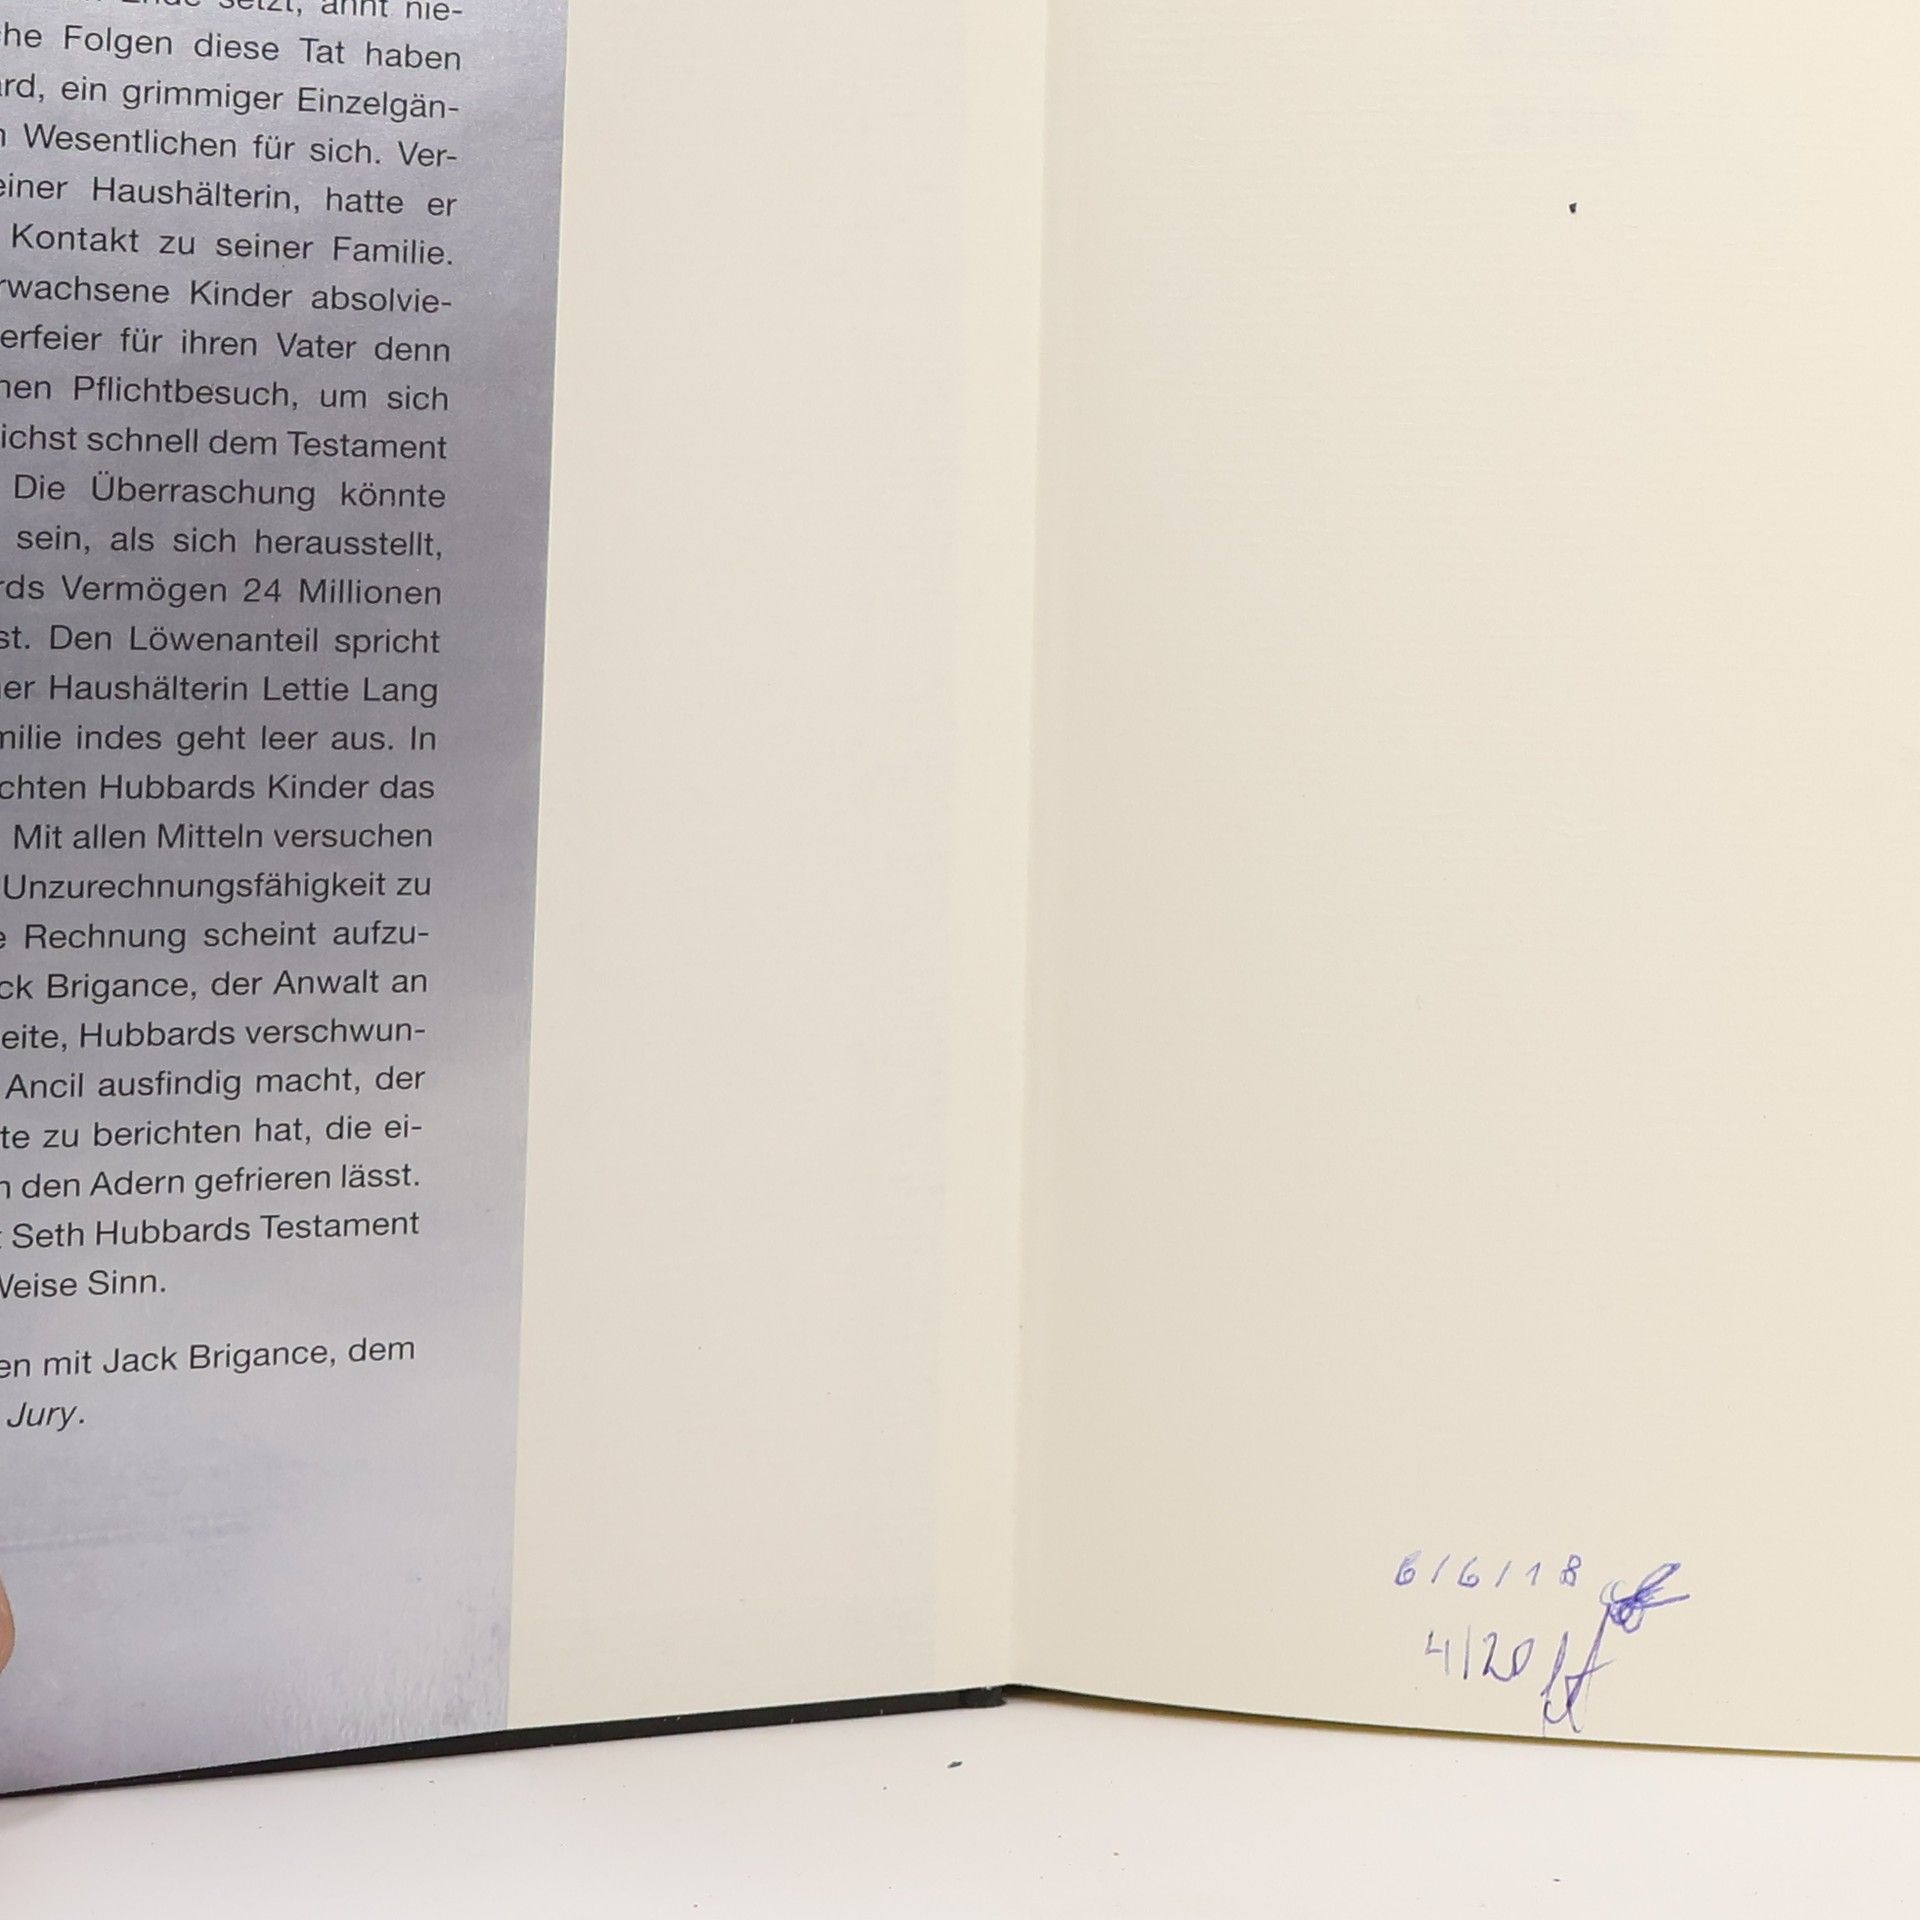 setzt, ahnt nie-
Folgen diese Tat haben
ein grimmiger Einzelgän-
Wesentlichen für sich. Ver-
Haushälterin, hatte er
Kontakt zu seiner Familie.
Kinder absolvie-
für ihren Vater denn
Pflichtbesuch, um sich
schnell dem Testament
Die Überraschung könnte
sein, als sich herausstellt,
Vermögen 24 Millionen
Den Löwenanteil spricht
Haushälterin Lettie Lang
indes geht leer aus. In
Hubbards Kinder das
Mit allen Mitteln versuchen
Unzurechnungsfähigkeit zu
Rechnung scheint aufzu-
Brigance, der Anwalt an
Hubbards verschwun-
Ancil ausfindig macht, der
zu berichten hat, die ei-
den Adern gefrieren lässt.
Seth Hubbards Testament
Sinn.
mit Jack Brigance, dem
Jury.
6/6/18
4/20